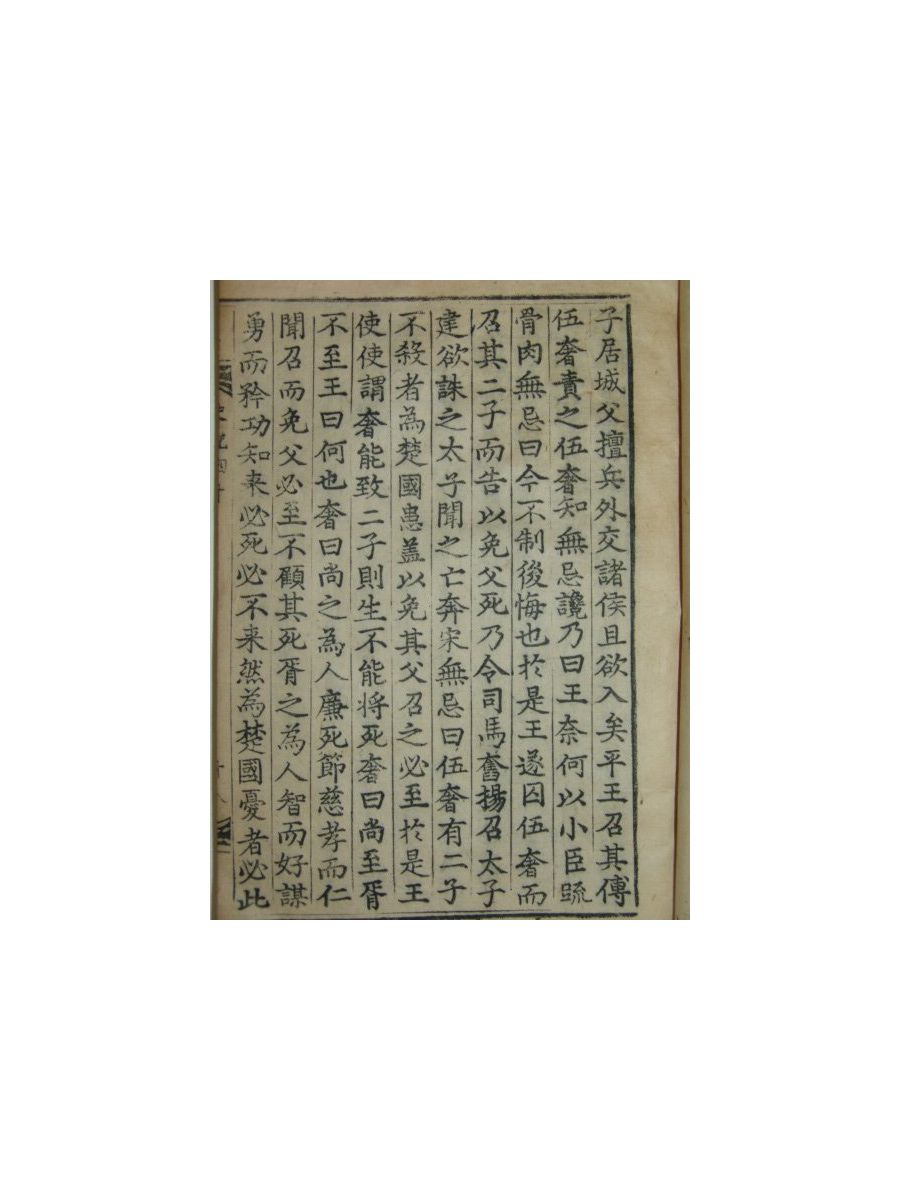 子居城父擅兵外交諸侯且欲入矣平王召其傅
伍奢責之伍奢知無忌讒乃曰王奈何以小臣疏
骨肉無忌曰今不制後悔也於是王遂囚伍奢而
召其二子而告以免父死乃令司馬奮揚召太子
建欲誅之太子聞之亡奔宋無忌曰伍奢有二子
不殺者為楚國患盖以免其父召之必至於是王
使使謂奢能致二子則生不能将死奢曰尚至胥
不至王曰何也奢曰尚之為人廉死節慈孝而仁
聞召而免父必至不顧其死胥之為人智而好謀
勇而矜功知来必死必不来然為楚國憂者必此